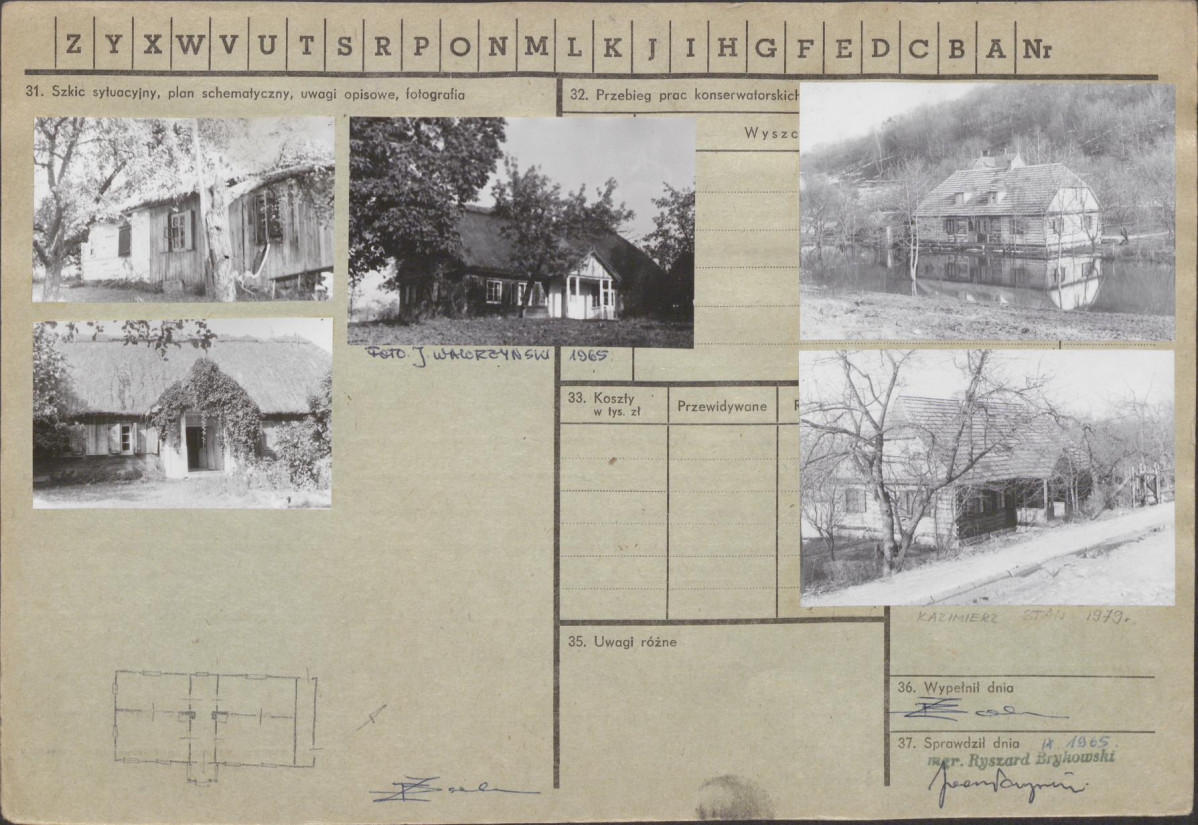 Z Y X W V U T S R P O N M L K J I H G F E D C B A Nr
31. Szkic sytuacyjny, plan schematyczny, uwagi opisowe, fotografia
32. Przebieg prac konserwatorskich
Wyszc
FOTO. J WAWRZYŃSKI 1965
33. Koszty
w tys. zł
Przewidywane
KAZIMIERZ STAN 1979r.
35. Uwagi różne
36. Wypełnił dnia
37. Sprawdził dnia IX 1965.
mgr. Ryszard Brykowski